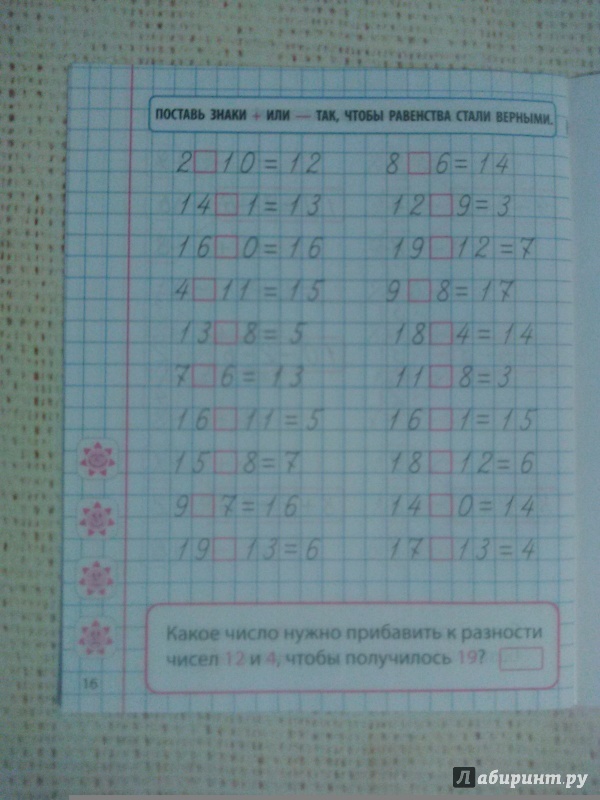 ПОСТАВЬ ЗНАКИ + ИЛИ — ТАК, ЧТОБЫ РАВЕНСТВА СТАЛИ ВЕРНЫМИ.
2□10=12
14□1=13
16□0=16
4□11=15
13□8=5
7□6=13
16□11=5
15□8=7
9□7=16
19□13=6
8□6=14
12□9=3
19□12=7
9□8=17
18□4=14
11□8=3
16□1=15
18□12=6
14□0=14
17□13=4
Какое число нужно прибавить к разности
чисел 12 и 4, чтобы получилось 19?
16
Лабиринт.ру